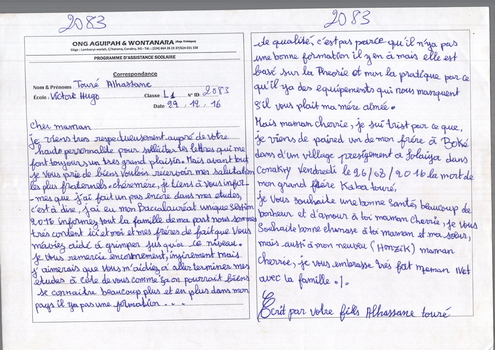 2083
ONG AGUIPAH & WONTANARA
PROGRAMME D'ASSISTANCE SCOLAIRE
Correspondance
Nom & Prénoms Touré Alhassane
École Victort Hugo Classe L1 N° ID 2083
Date 29 . 12 . 16
Cher maman
Je viens très respectueusement auprè de votre
haute personnalité pour solliciter les lettres qui me
font toujours un très grand plaisir. Mais avant tout
je vous prie de bien vouloir recevoir mes salutation
les plus fraternels chère mère, je tiens à vous infor-
mes que j'ai fait un pas encore dans mes etudes
c'est à dire, j'ai eu mon Baccalauréat unique session
2016 informez tout la famille de ma part nous sommes
très content ici et moi et mes frères de fait que vous
m'aviez aidé à grimper jus qu'à ce niveau.
Je vous remercie enormement, infiniment mais
j'aimerais que vous m'aidiez à aller terminer mes
etudes à coté de vous comme ça on pourrait biens
se connaitre beaucoup plus et en plus dans mon
pays il ya pas une formation . . .
2083
de qualité, c'est pas parce qu'il n'ya pas
une bonne formation il y en à mais elle est
basé sur la theorie et non la pratique par ce
qu'il ya des equipements qui nous manquent
s'il vous plait ma mère aimée.
Mais maman cherrie, je sui trist par ce que,
je viens de pairred un de mon frère à Boké
dans d'un village
Conakry vendredi le 26/08/2016 la mort de
mon grand frère Kaba touré.
Je vous souhaite une bonne Santé, beaucoup de
bonheur et d'amour à toi maman Cherrie, je vous
Souhaite bonne chanse à toi maman et ma sœur,
mais aussi à mon neuveu (HONZIK) maman
cherrie, je vous embrasse très fort maman
avec la famille ./.
Ecrit par votre fills Alhassane touré